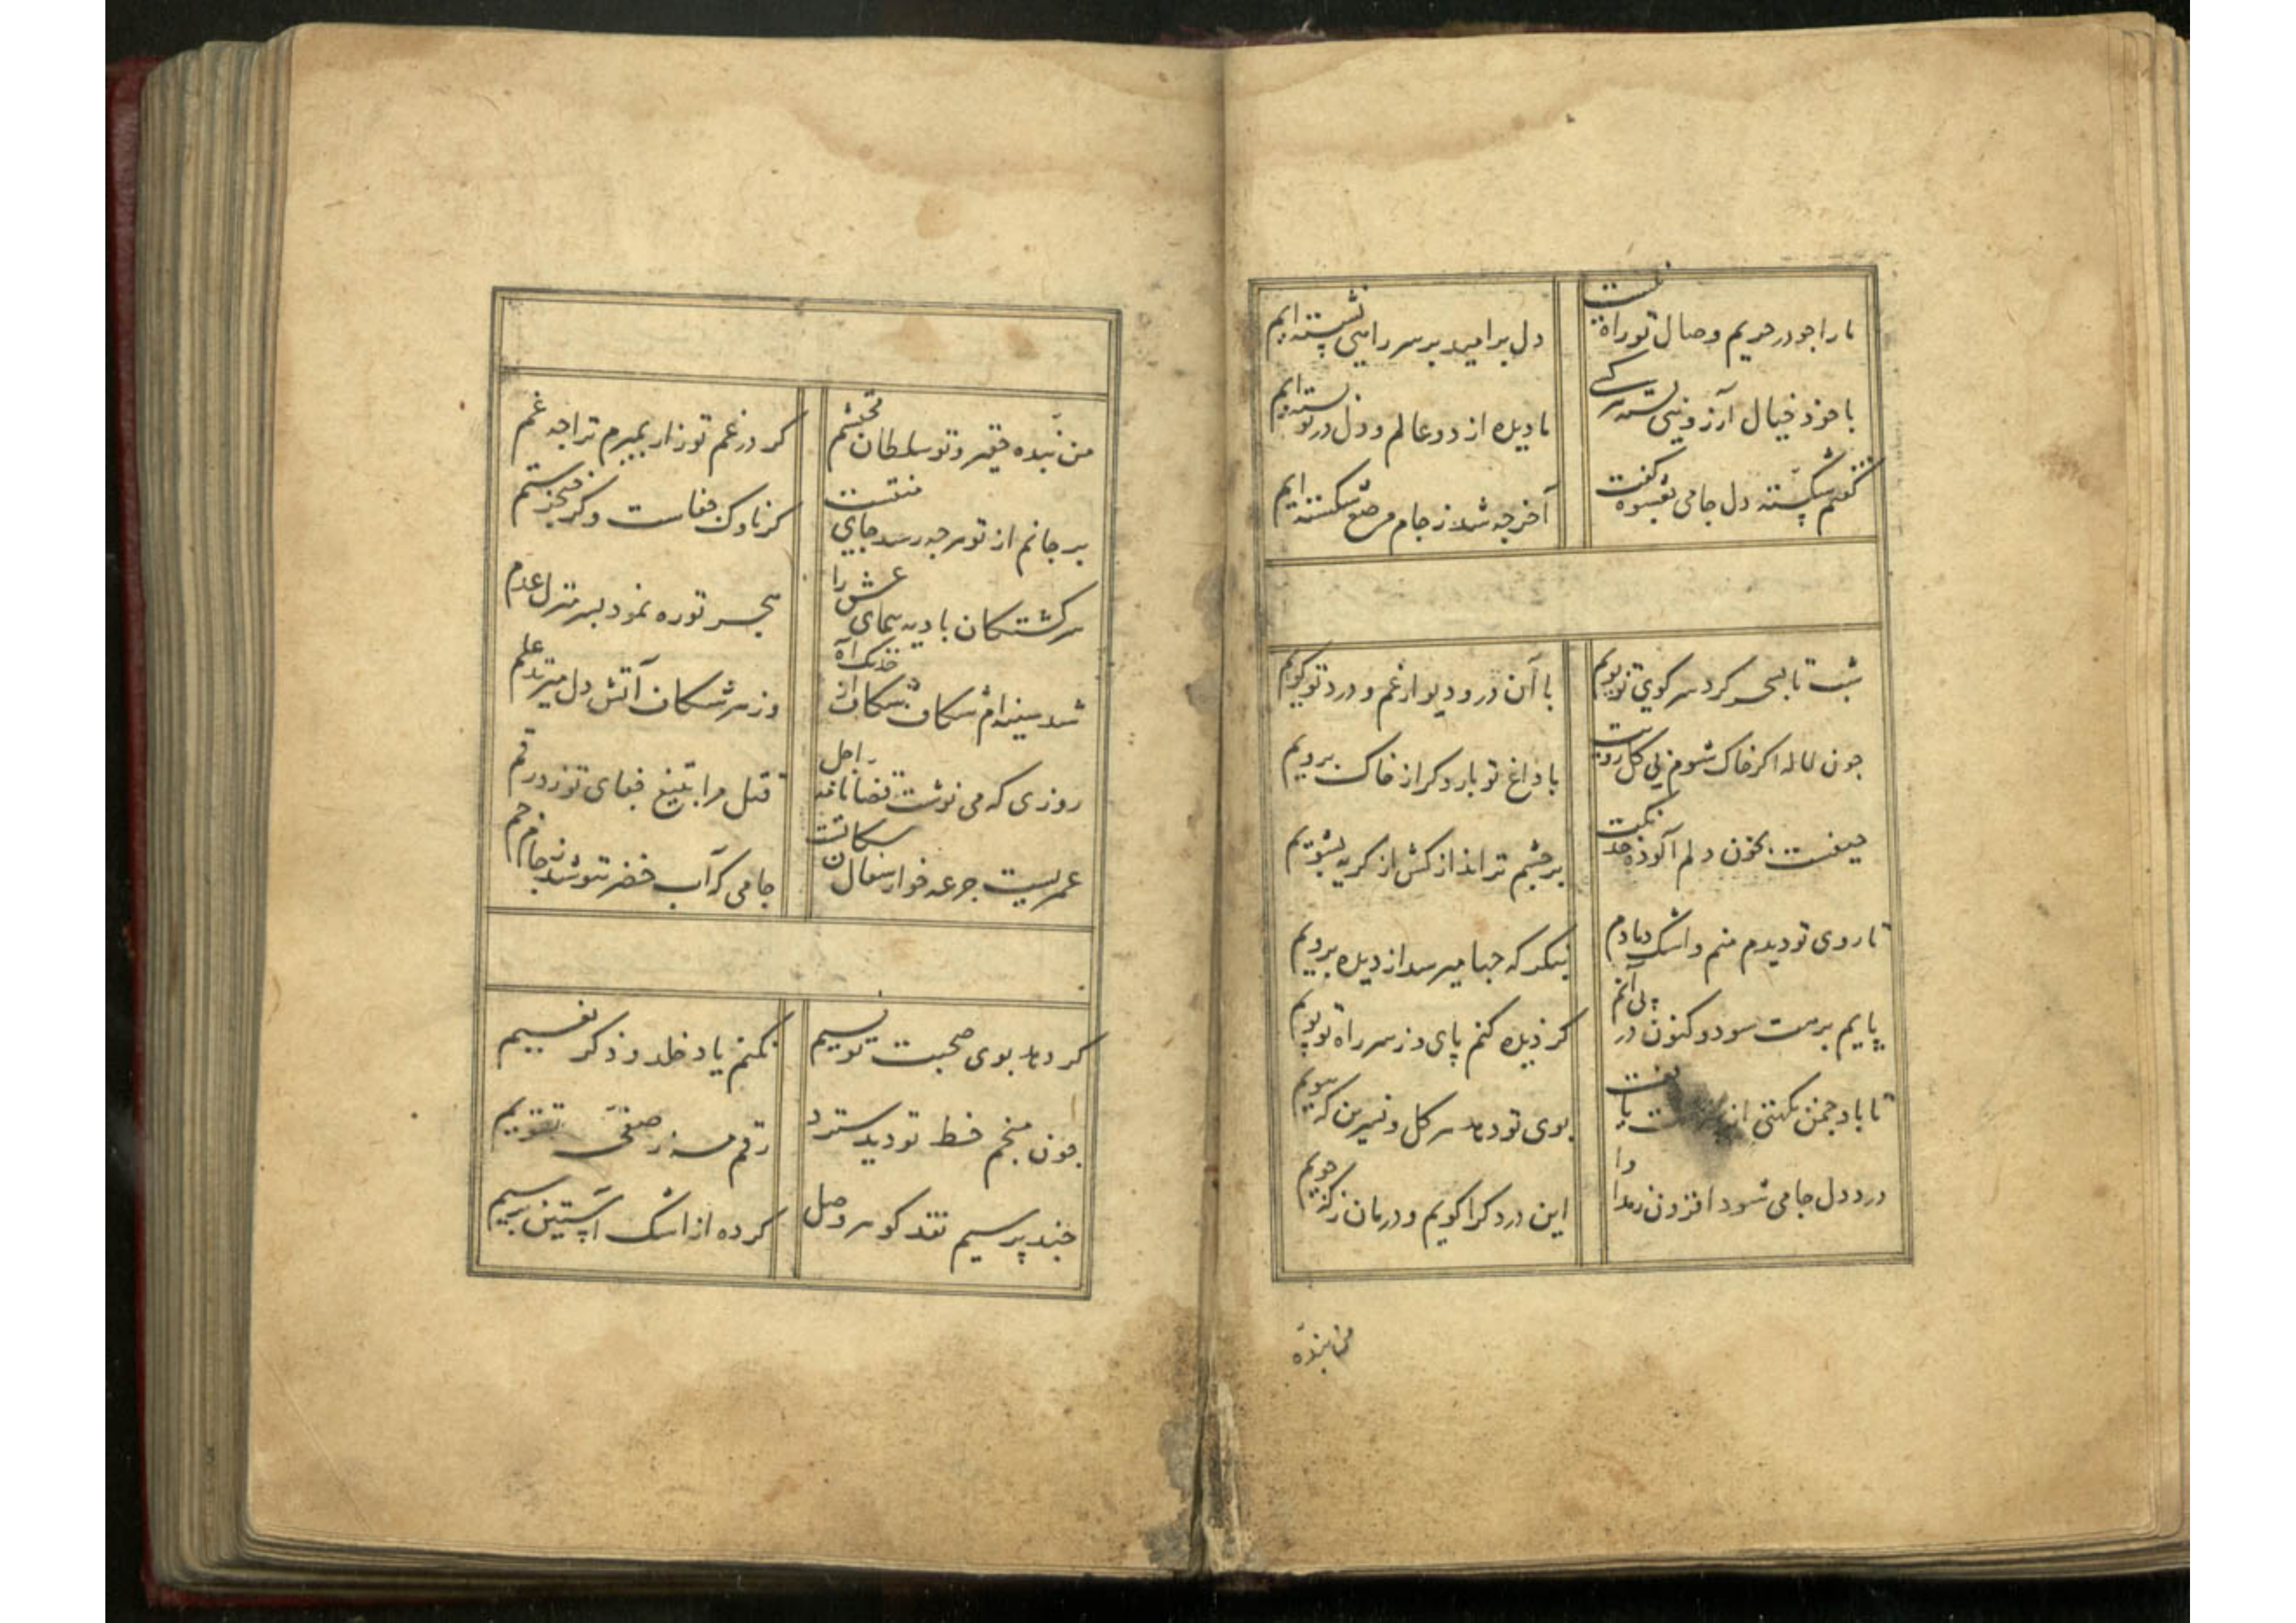 ما را جو در حریم وصال تو راه نیست
دل بر امید بر سر راهی نشسته ایم
با خود خیال آرزوئی بسته هر کسی
ما دیده از دو عالم و دل در تو بسته ایم
گفتم شکسته دل جامی بعشوه گفت
آخر چه شد ز جام مرصع شکسته ایم
شب تا بسحر کرد سر کوی تو پویم
با آن در و دیوار غم و درد تو کویم
جون لاله اکر خاک شوم بی کل رویت
با داغ تو بار دکر از خاک برویم
حیفست بخون دلم آلوده خدنکت
بر چشم تر انداز کش از کریه بشویم
تا روی تو دیدم منم و اشک دمادم
بنکر که جها میرسد از دیده برویم
پایم برهت سود و کنون در پی آنم
کز دیده کنم پای و ز سر راه تو پویم
تا باد جمن نکهتی از یافت
بوی تو دهد هر کل و نسرین که ببویم
درد دل جامی شود افزون ز مداوا
این درد کرا کویم و درمان ز که جویم
من بنده
من بنده حقیر و تو سلطان محتشم
کر در غم تو زار بمیرم ترا چه غم
بر جانم از تو هر چه رسد جای منتست
کر ناوک جفاست و کر خنجر ستم
سرکشتکان بادیه پیمای عشق را
هجر تو ره نمود بسر منزل عدم
شد سینه ام شکاف شکاف از خدنک آه
وز هر شکاف آتش دل میزند علم
روزی که می نوشت قضا نامه اجل
قتل مرا بتیغ جفای تو زد رقم
عمریست جرعه خوار سفال سکانت
جامی که آب خضر ننوشد ز جام جم
کر دهد بوی صحبت تو نسیم
نکنم یاد خلد و ذکر نعیم
جون منجم خط تو دید سترد
رقم مه ز صفحۀ تقویم
چند پرسیم نقد کوهر وصل
کرده از اشک آستین پر سیم